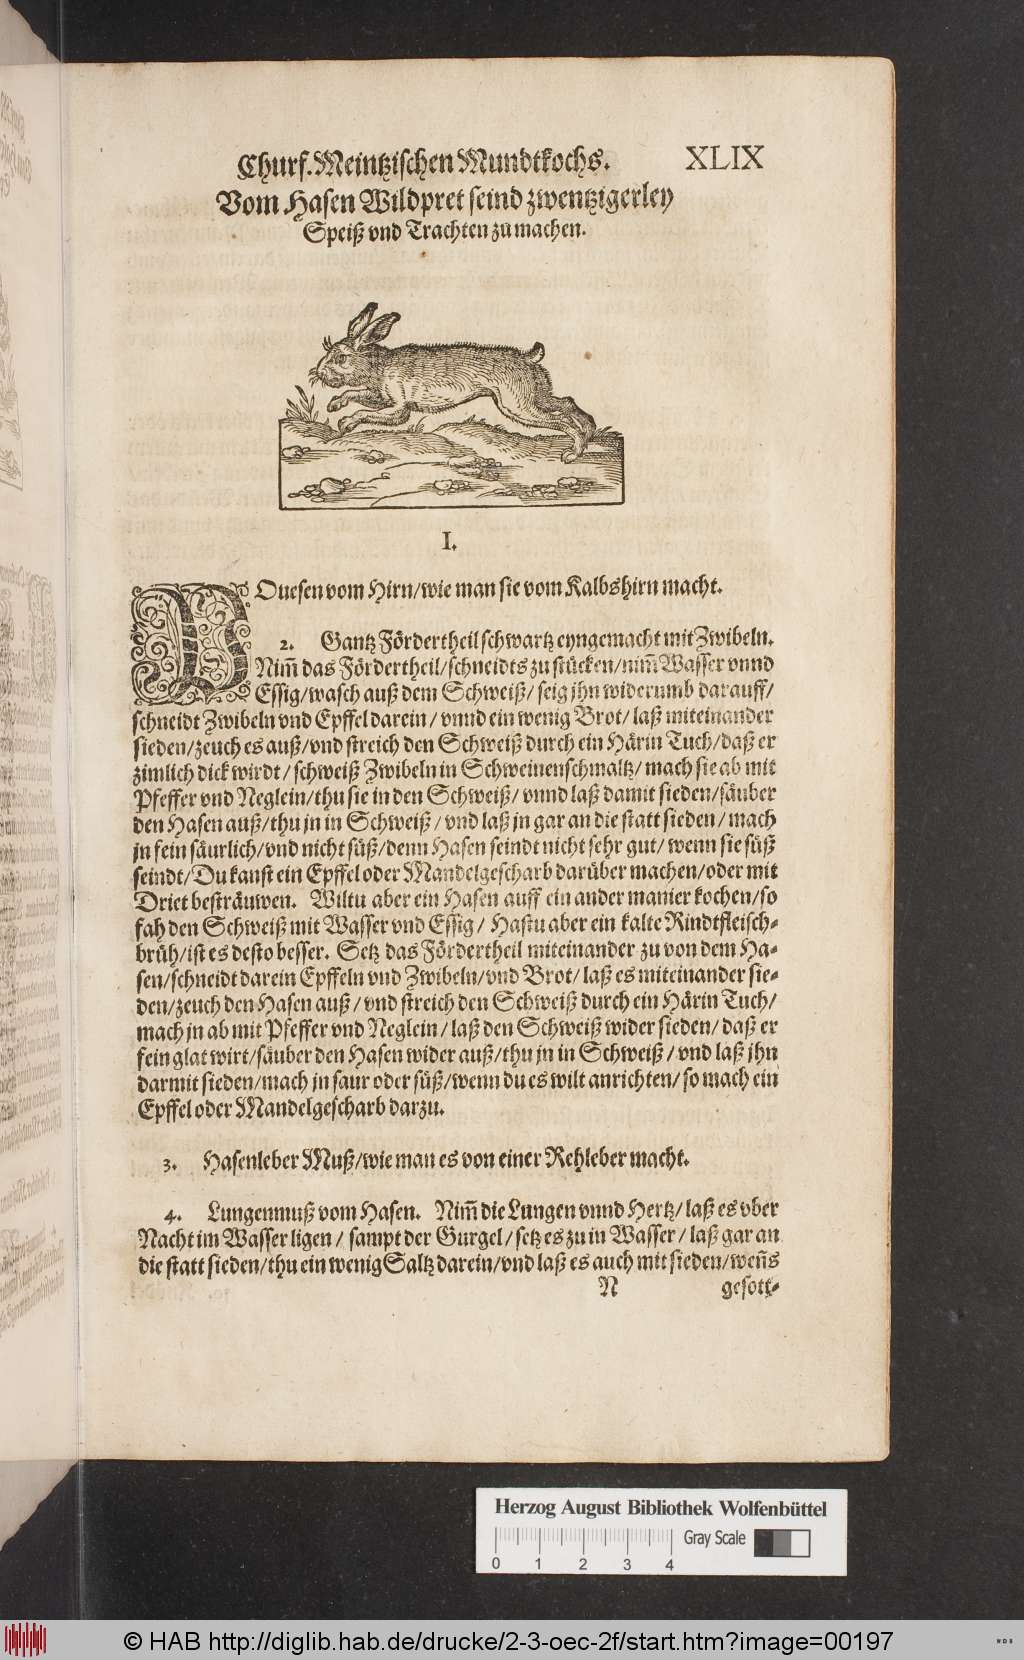 Churf. Meintzischen Mundtkochs. XLIX
Vom Hasen Wildpret seind zwentzigerley
Speiß vnd Trachten zu machen.
I.
POuesen vom Hirn/wie man sie vom Kalbshirn macht.
2. Gantz Fördertheil schwartz eyngemacht mit Zwibeln.
Nim̃ das Fördertheil/schneidts zu stücken/nim̃ Wasser vnnd
Essig/wasch auß dem Schweiß/ seig jhn widerumb darauff/
schneidt Zwibeln vnd Epffel darein/ vnnd ein wenig Brot/ laß miteinander
sieden/zeuch es auß/vnd streich den Schweiß durch ein Härin Tuch/daß er
zimlich dick wirdt/ schweiß Zwibeln in Schweinenschmaltz/ mach sie ab mit
Pfeffer vnd Neglein/thu sie in den Schweiß/ vnnd laß damit sieden/säuber
den Hasen auß/thu jn in Schweiß/ vnd laß jn gar an die statt sieden/ mach
jn fein säurlich/vnd nicht süß/denn Hasen seindt nicht sehr gut/ wenn sie süß
seindt/Du kanst ein Epffel oder Mandelgescharb darüber machen/oder mit
Driet besträuwen. Wiltu aber ein Hasen auff ein ander manier kochen/so
fah den Schweiß mit Wasser vnd Essig/ Hastu aber ein kalte Rindtfleisch-
brüh/ist es desto besser. Setz das Fördertheil miteinander zu von dem Ha-
sen/schneidt darein Epffeln vnd Zwibeln/vnd Brot/ laß es miteinander sie-
den/zeuch den Hasen auß/ vnd streich den Schweiß durch ein Härin Tuch/
mach jn ab mit Pfeffer vnd Neglein/ laß den Schweiß wider sieden/ daß er
fein glat wirt/säuber den Hasen wider auß/thu jn in Schweiß/ vnd laß jhn
darmit sieden/mach jn saur oder süß/wenn du es wilt anrichten/so mach ein
Epffel oder Mandelgescharb darzu.
3. Hasenleber Muß/wie man es von einer Rehleber macht.
4. Lungenmuß vom Hasen. Nim̃ die Lungen vnnd Hertz/ laß es vber
Nacht im Wasser ligen/ sampt der Gurgel/ setz es zu in Wasser/ laß gar an
die statt sieden/thu ein wenig Saltz darein/vnd laß es auch mit sieden/wen̄s
N gesott-
Herzog August Bibliothek Wolfenbüttel
0 1 2 3 4 Gray Scale
© HAB http://diglib.hab.de/drucke/2-3-oec-2f/start.htm?image=00197
WDB